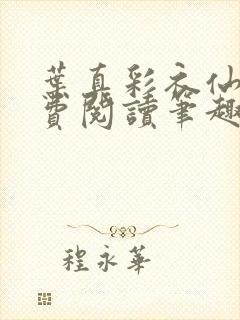 葉真彩衣仙
費閱讀筆趣
程永華